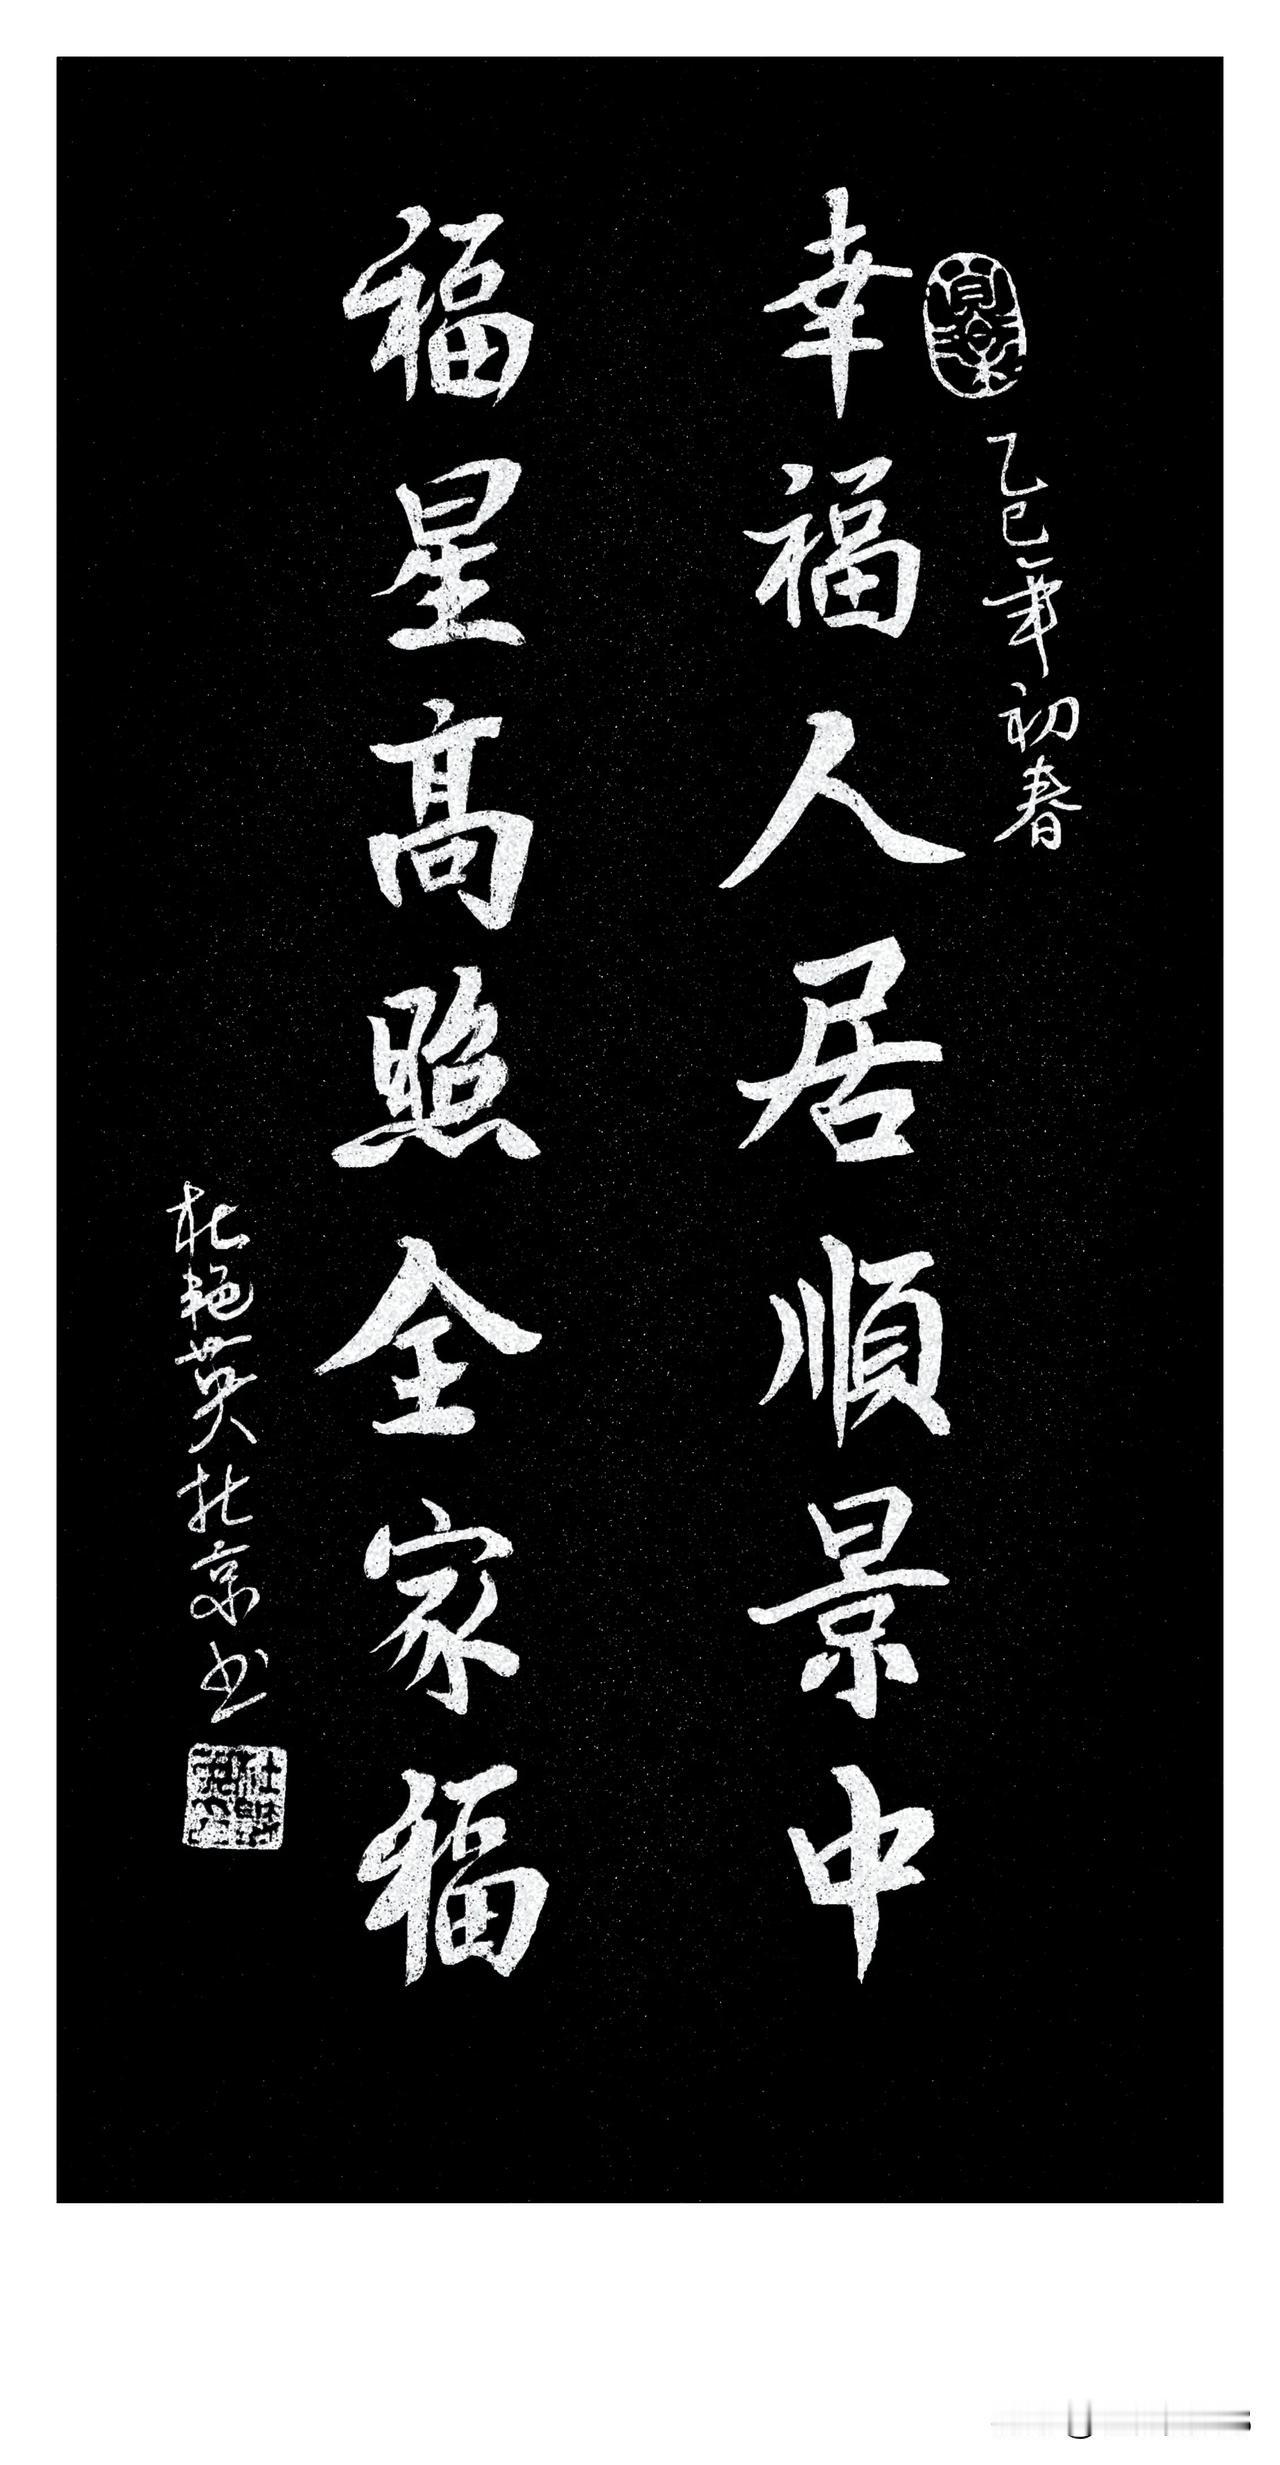 乙巳年初春
幸福人居順景中
福星高照全家福
杜艳英北京书